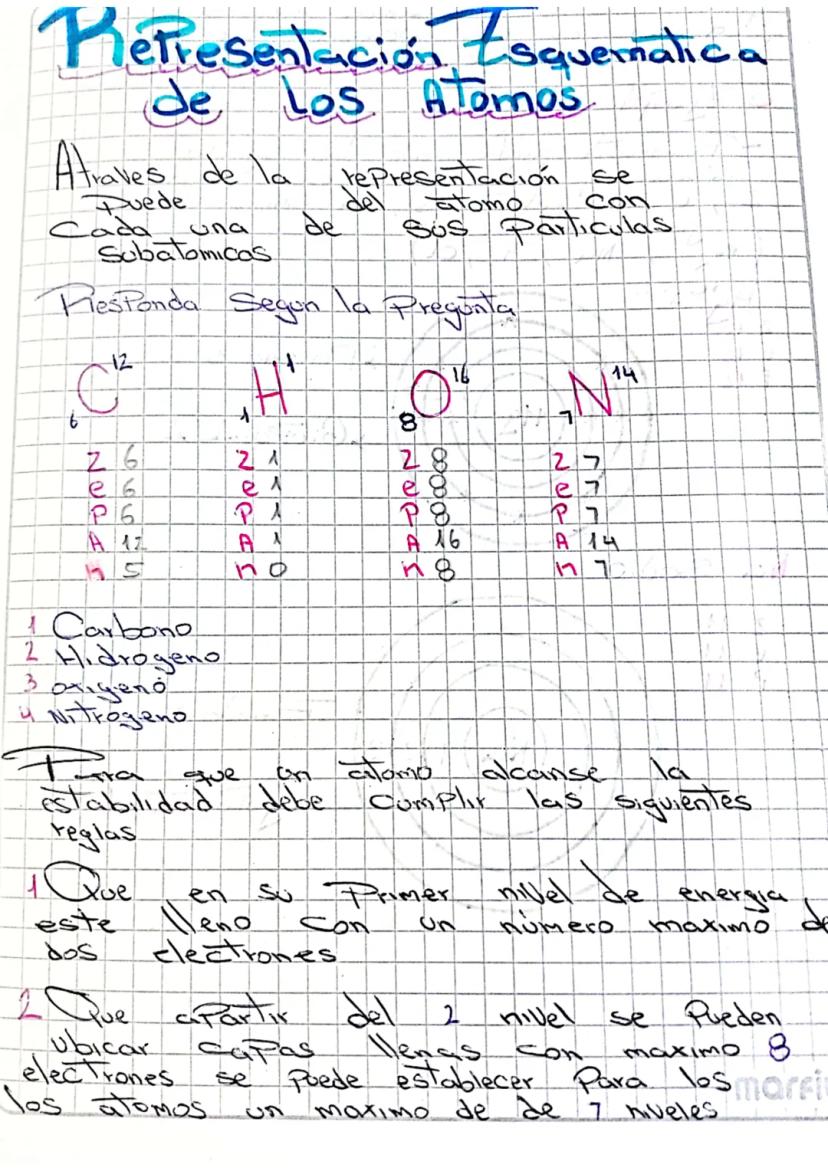 Representación Esquematica
de los Atomos
Atraves de la representación se
puede del atomo con
Cada una de sus particulas
subatomicas
Responda Segun la Pregunta
6 C 12 1 H 1 8 O 16 7 N 14
Z 6 Z 1 Z 8 Z 7
e 6 e 1 e 8 e 7
P 6 P 1 P 8 P 7
A 12 A 1 A 16 A 14
n 5 n 0 n 8 n 7
1 Carbono
2 Hidrogeno
3 oxigeno
4 Nitrogeno
Para que un atomo alcanse la
estabilidad debe cumplir las siguientes
reglas
1 Que en su Primer nivel de energia
este lleno con un número maximo de
dos electrones
2 Que apartir del 2 nivel se pueden
ubicar capas llenas con maximo 8
electrones se puede establecer Para los
los atomos un maximo de de 7 niveles